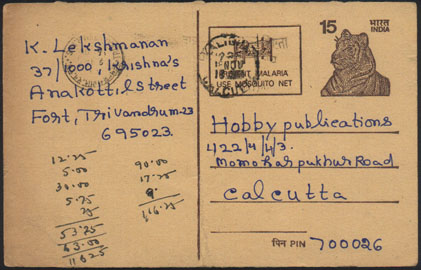 K. Lekshmanan
37/1000, Krishna's
Anakottil Street
Fort, Trivandrum-23
695023
12.25
5.00
30.00
5.75
25
53.25
63.00
116.25
90.00
17.25
9.
116.25
NOV
PREVENT MALARIA
USE MOSQUITO NET
15
भारत
INDIA
Hobby publications
422/4/4/3.
Momoharpukhur Road
Calcutta
पिन PIN 700026